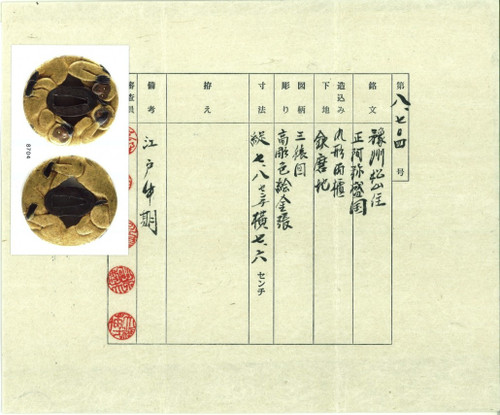 第八、七〇四号
銘文 豫州松山住
正阿弥盛国
造込み 丸形両櫃
下地 鉄磨地
図柄 三猿図
彫り 高彫色絵金張
寸法 縦七、八センチ横七、六センチ
拵え
備考 江戸中期
審査員
8704